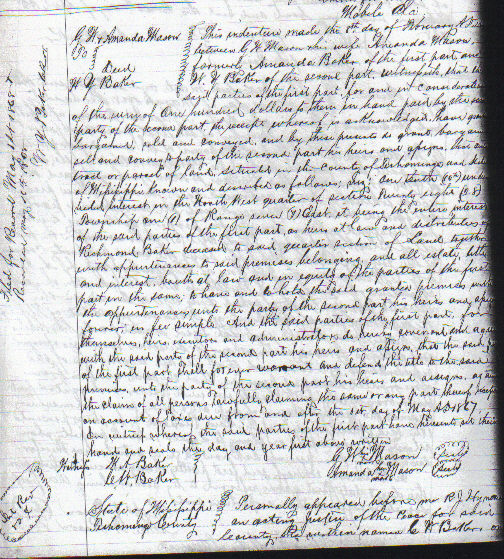 Mobile
G W & Amanda Mason
To
Deed
W Y Baker
This indenture made the 8th day of February A.D.
between G W Mason and wife Amanda Mason,
formerly Amanda Baker of the first part and
W. Y Baker of the second part, witnesseth, that the
said parties of the first part for and in consideration
of the sum of One hundred dollars to them in hand paid by the said
party of the second part, the receipt whereof is acknowledged, have
bargained, sold and conveyed, and by these presents do grant, bargain
sell and convey to party of the second part his heirs and assigns, this
tract or parcel of land, situated in the County of Tishomingo and
of Mississippi known and described as follows, one tenth (10th)
interest in the North West quarter of section Twenty eight (28)
Township one (1) of Range seven (7) East, it being the entire interest
of the said parties of the first part, as heirs at law and distributees of
Richmond Baker deceased to said quarter section of Land together
with appurtenances to said premises belonging, and all estate, title
and interest, both at law and in equity of the parties of the first
part in the same, to have and to hold the said granted premises with
the appurtenances unto the party of the second part his heirs and
forever, in fee simple. And the said parties of the first part, for
themselves, heirs, executors and administrators do hereby covenant and agree
with the said part of the second part his heirs and assigns, that the said
of the first part shall forever warrant and defend the title to the said
premises, unto the party of the second part his heirs and assigns, against
the claim of all persons lawfully claiming the same or any part thereof, except
on account of due from and after the 1st day of May AD 1867
In testimony whereof the said parties of the first part have hereunto set their
hand and seals the day and year first above written
Witness
W. A Baker
C W Baker
G W Mason
mark
Amanda Mason
mark
State of Mississippi
Tishomingo County
Personally appeared before me B. J.
an acting Justice of the Peace for said
County, the within named C W Baker
Filed for Record May 1st 1868
W. Y. Baker